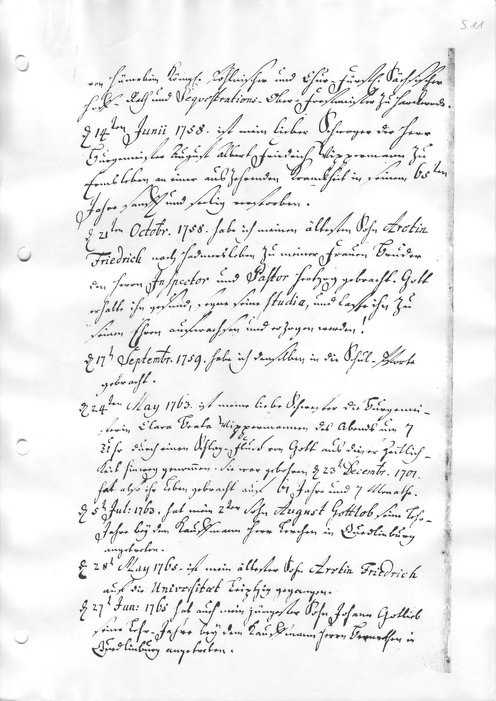 S 11
von Königl. Pohlnischer und Chur-Fürstl. Sächsischer
Hoff-Rath und Sequestrations-Ober-Forstmeister zu
d 14ten Junii 1758. ist mein lieber Schwager der Herr
Burgemeister August Albert Friedrich Wippermann zu
an einer auszehrenden Kranckheit in seinem 65ten
Jahre sanft und seelig verstorben.
d 21ten Octobr. 1758. habe ich meinen ältesten Sohn Arobin
Friedrich nach Hadmersleben zu meiner Frauen Bruder
den Herrn Inspector und Pastor gebracht. Gott
erhalte ihn gesund, segne seine Studia, und lasse ihn zu
seinen Ehren aufwachsen und erzogen werden!
d 17t Septembr. 1759. habe ich denselben in die Schul-Pforte
gebracht.
d 24ten May 1763. ist meine liebe Schwester die Burgemei-
sterin Clara Beata Wippermannen des Abends um 7
Uhr durch einen Schlag-Fluß von Gott aus dieser Zeitlich-
keit hinweg genommen. Sie war gebohren d 23t Decembr. 1701.
hat also ihr Leben gebracht auf 61 Jahre und 7 Monathe.
d 5t Jul: 1763. hat mein 2ter Sohn August Gottlob seine Lehr-
Jahre bey dem Kauffmann Herr in Quedlinburg
angetreten.
d 28t May 1765. ist mein ältester Sohn Arobin Friedrich
auf die Universitat Leipzig gegangen.
d 27t Jun: 1765 hat auch mein jüngster Sohn Johann Gottlieb
seine Lehr-Jahre bey dem Kauffmann Herrn in
Quedlinburg angetreten.